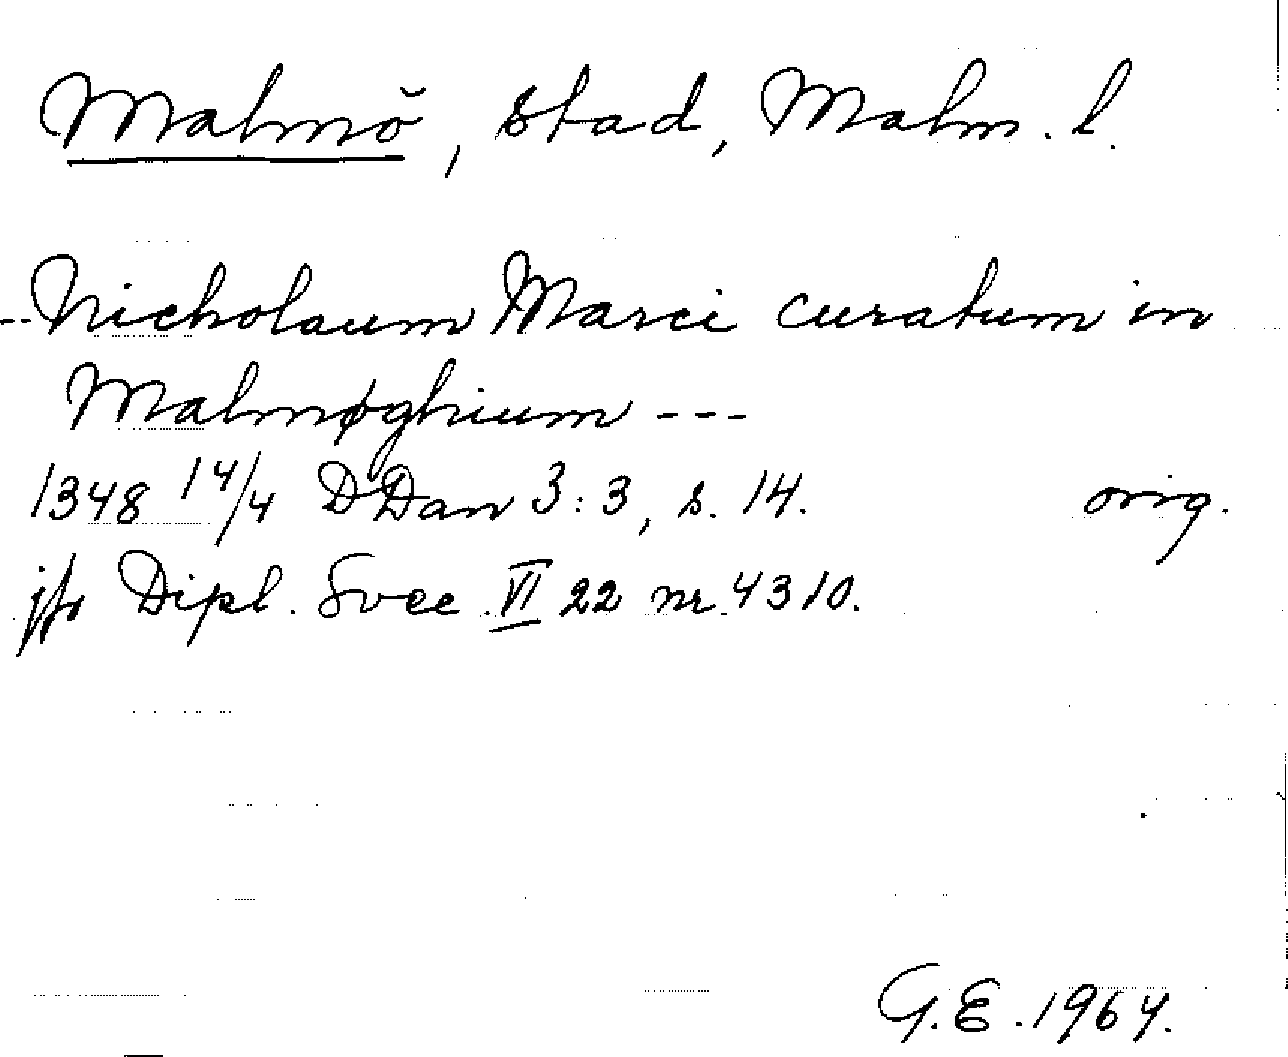 Malmö, stad, Malm. l.
-- Nicholaum Marci curatum in
Malmøghium ---
1348 14/4 DDan 3:3, s. 14. orig.
jfr Dipl. Svec. VI 22 nr 4310.
G.E. 1964.